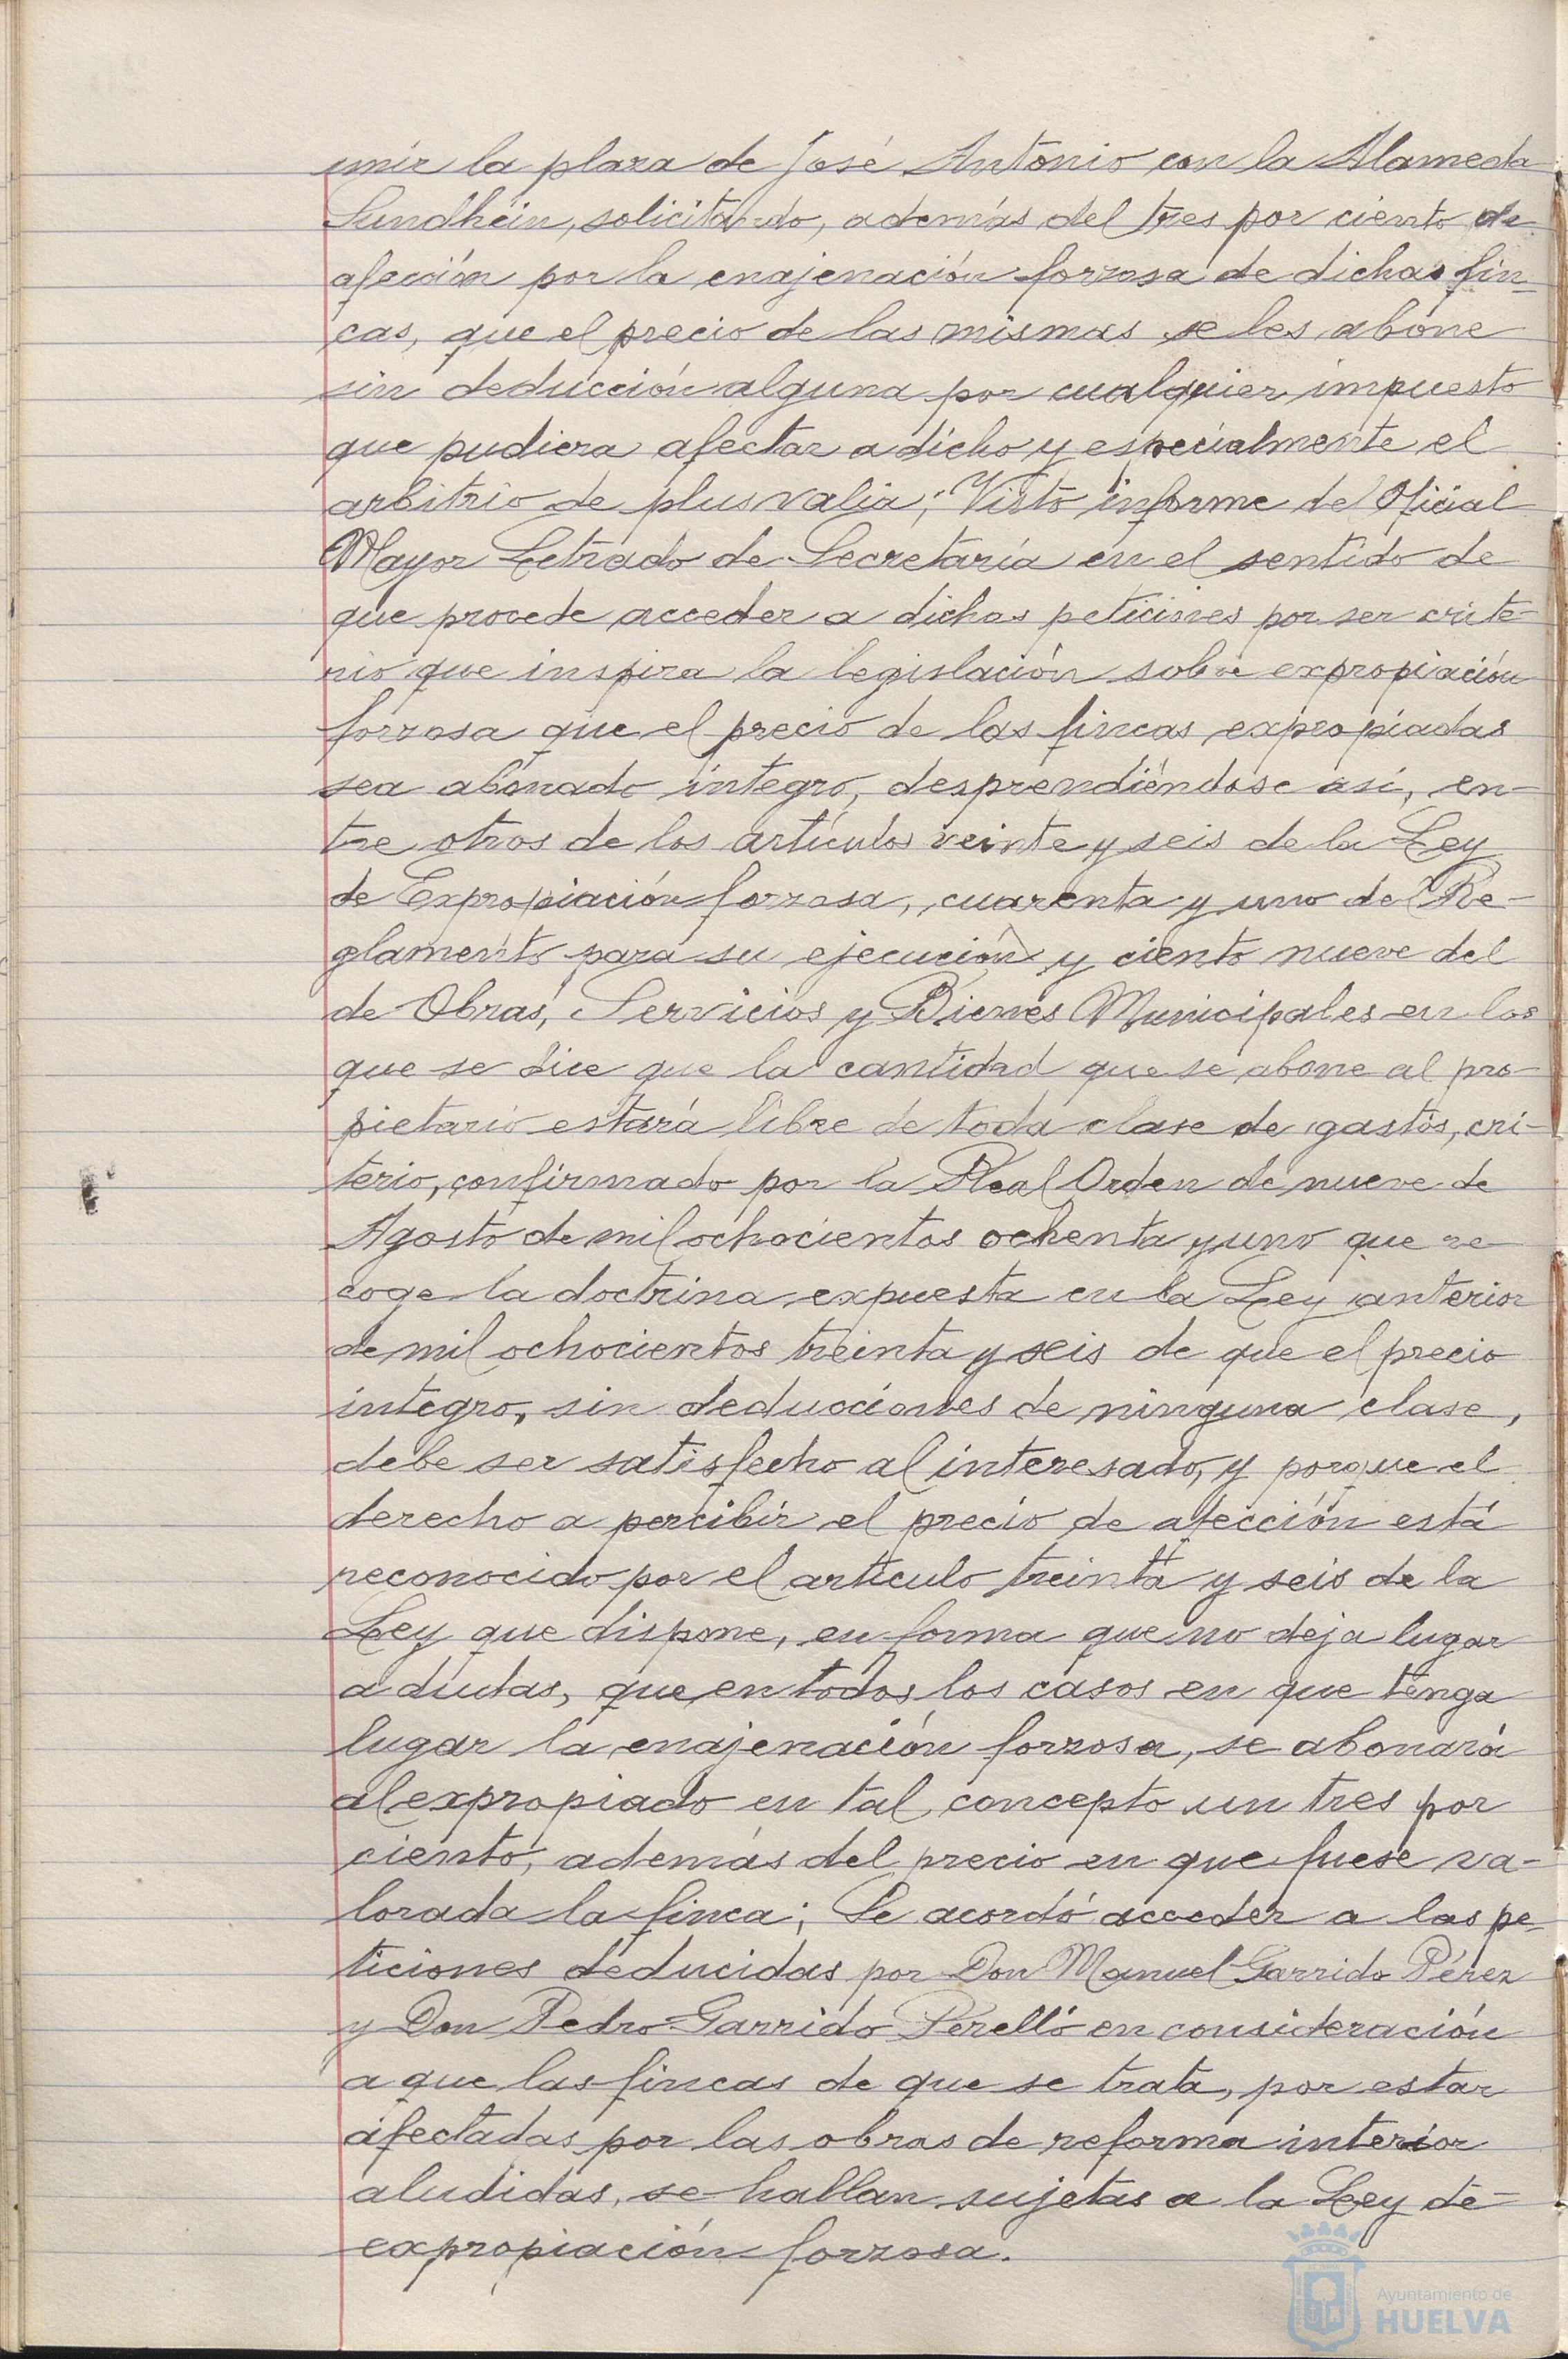 unir la plaza de José Antonio con la Alameda
Sundhein, solicitando, además del tres por ciento de
afección por la enajenación forzosa de dichas fin-
cas, que el precio de las mismas se les abone
sin deducción alguna por cualquier impuesto
que pudiera afectar a dicho y especialmente el
arbitrio de plus valia; Visto informe del Oficial
Mayor Letrado de Secretaría en el sentido de
que procede acceder a dichas peticiones por ser crite-
rio que inspira la legislación sobre expropiación
forzosa que el precio de las fincas expropiadas
sea abonado íntegro, desprendiéndose así, en-
tre otros de los artículos veinte y seis de la Ley
de Expropiación forzosa, cuarenta y uno del Re-
glamento para su ejecución y ciento nueve del
de Obras, Servicios y Bienes Municipales en los
que se dice que la cantidad que se abone al pro-
pietario estará libre de toda clase de gastos, cri-
terio, confirmado por la Real Orden de nueve de
Agosto de mil ochocientos ochenta y uno que re
coge la doctrina expuesta en la Ley anterior
de mil ochocientos treinta y seis de que el precio
integro, sin deducciones de ninguna clase,
debe ser satisfecho al interesado, y porque el
derecho a percibir el precio de afección está
reconocido por el artículo treinta y seis de la
Ley que dispone, en forma que no deja lugar
a dudas, que en todos los casos en que tenga
lugar la enajenación forzosa, se abonará
al expropiado en tal concepto un tres por
ciento, además del precio en que fuese va-
lorada la finca; Se acordó acceder a las pe-
ticiones deducidas por Don Manuel Garrido Pérez
y Don Pedro Garrido Perelló en consideración
a que las fincas de que se trata, por estar
afectadas por las obras de reforma interior
aludidas, se hallan sujetas a la Ley de
expropiación forzosa.
Ayuntamiento de
HUELVA